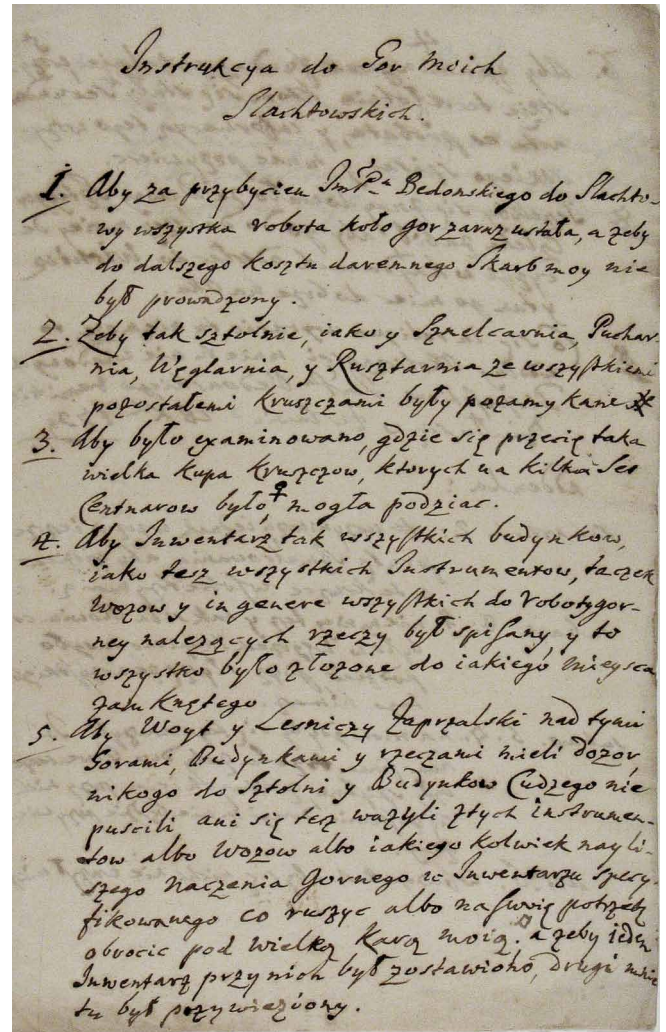 Instrukcya do Gor moich
Slachtowskich.
1. Aby za przybyciem Jm Pn Bedonskiego do Slachto-
wy wszystka robota koło gor zaraz ustała, a zeby
do dalszego kosztu daremnego Skarb moy nie
był prowadzony.
2. Zeby tak sztolnie, iako y Sznelcarnia, Puchar-
nia, Węglarnia, y Rusztarnia ze wszystkiemi
pozostałemi Kruszczami były pozamykane
3. Aby było examinowano, gdzie się przecię taka
wielka kupa Kruszczow, ktorych na kilka Set
Centnarow było, mogła podziac.
4. Aby Inwentarz tak wszystkich budynkow,
iako tesz wszystkich Instrumentow, taczek
Wozow y in genere wszystkich do Roboty gor-
ney nalezących rzeczy był spisany, y to
wszystko było złozone do iakiego mieysca
zamknętego
5. Aby Woyt y Lesniczy Zaprzalski nad tymi
Gorami, Budynkami y rzeczami mieli dozor,
nikogo do Sztolni y Budynkow Cudzego nie
puscili ani się tesz wazyli z tych instrumen-
tow albo Wozow albo iakiego kolwiek nayli-
szego naczenia Gornego w Inwentarzu specy-
fikowanego co ruszyc albo na swoię potrzebę
obrocic pod wielką karą moią. a zeby ieden
Inwentarz przy nich był zostawiono, drugi mnie
tu był przywieziony.